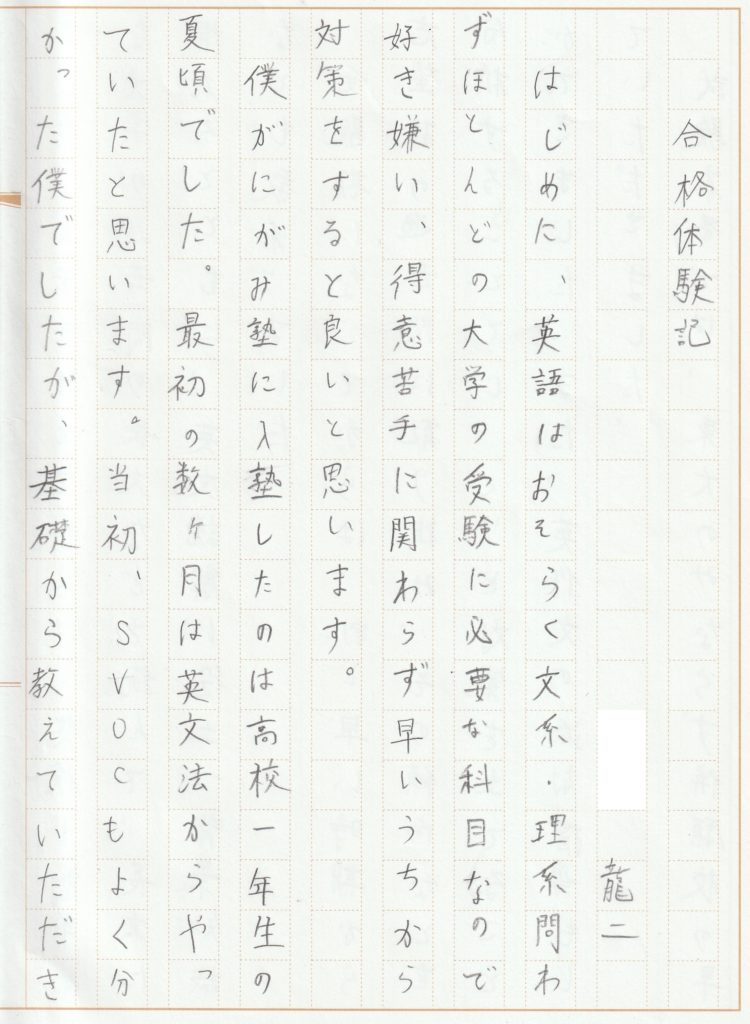 合格体験記
龍二
はじめに、英語はおそらく文系・理系問わ
ずほとんどの大学の受験に必要な科目なので
好き嫌い、得意苦手に関わらず早いうちから
対策をすると良いと思います。
僕がにがみ塾に入塾したのは高校一年生の
夏頃でした。最初の数ヶ月は英文法からやっ
ていたと思います。当初、SVOCもよく分
かった僕でしたが、基礎から教えていただき